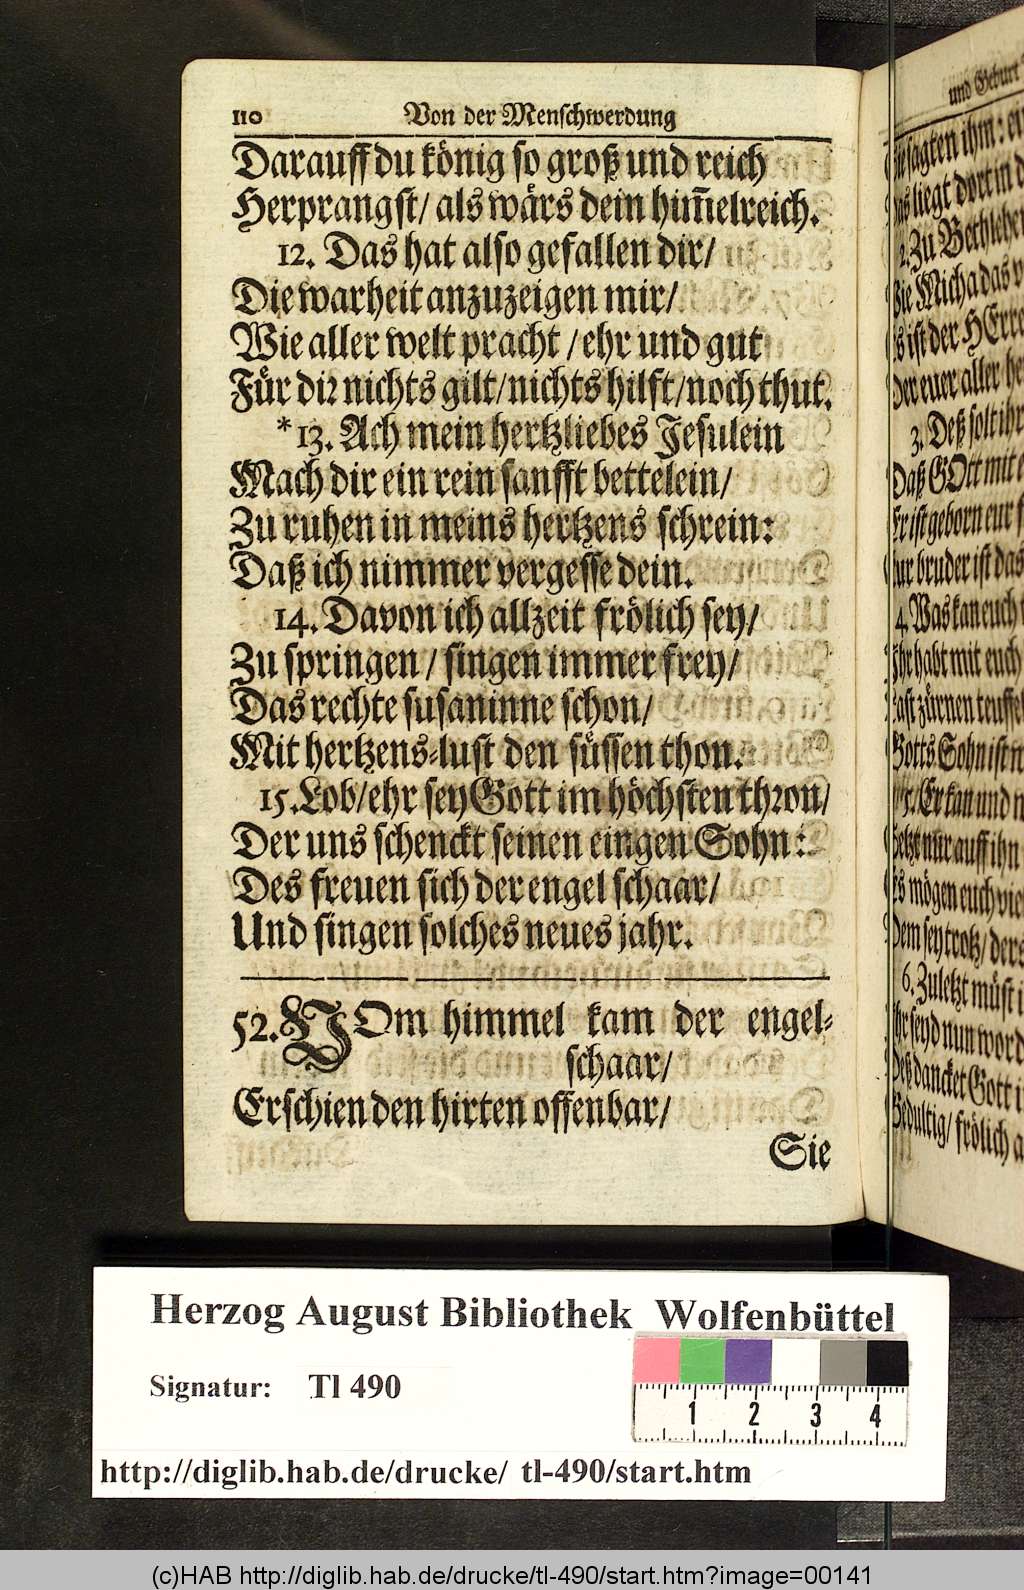 110 Von der Menschwerdung
Darauff du könig so groß und reich
Herprangst/ als wärs dein him̃elreich.
12. Das hat also gefallen dir/
Die warheit anzuzeigen mir/
Wie aller welt pracht/ ehr und gut
Für dir nichts gilt/ nichts hilft/ noch thut.
*13. Ach mein hertzliebes Jesulein
Mach dir ein rein sanfft bettelein/
Zu ruhen in meins hertzens schrein:
Daß ich nimmer vergesse dein.
14. Davon ich allzeit frölich sey/
Zu springen/ singen immer frey/
Das rechte susaninne schon/
Mit hertzens-lust den süssen thon.
15. Lob/ ehr sey Gott im höchsten thron/
Der uns schenckt seinen eingen Sohn:
Des freuen sich der engel schaar/
Und singen solches neues jahr.
52. VOm himmel kam der engel-
schaar/
Erschien den hirten offenbar/
Sie
und Geburt
sagten ihm:
liegt dort in
2. Zu Bethlehem
Wie Micha das
ist der HErre
Der euer aller
3. Deß solt ihr
Daß GOtt mit
Er ist geborn eur
bruder ist das
4. Was kan euch
Ihr habt mit euch
Last zürnen teuffel
Gotts Sohn ist
5. Er kan und
Setzt nur auff ihn
Es mögen euch viel
Dem sey trotz/ der
6. Zuletzt müst
Ihr seyd nun
Deß dancket Gott
Gedultig/ frölich
Herzog August Bibliothek Wolfenbüttel
Signatur: Tl 490
1 2 3 4
http://diglib.hab.de/drucke/ tl-490/start.htm
(c)HAB http://diglib.hab.de/drucke/tl-490/start.htm?image=00141